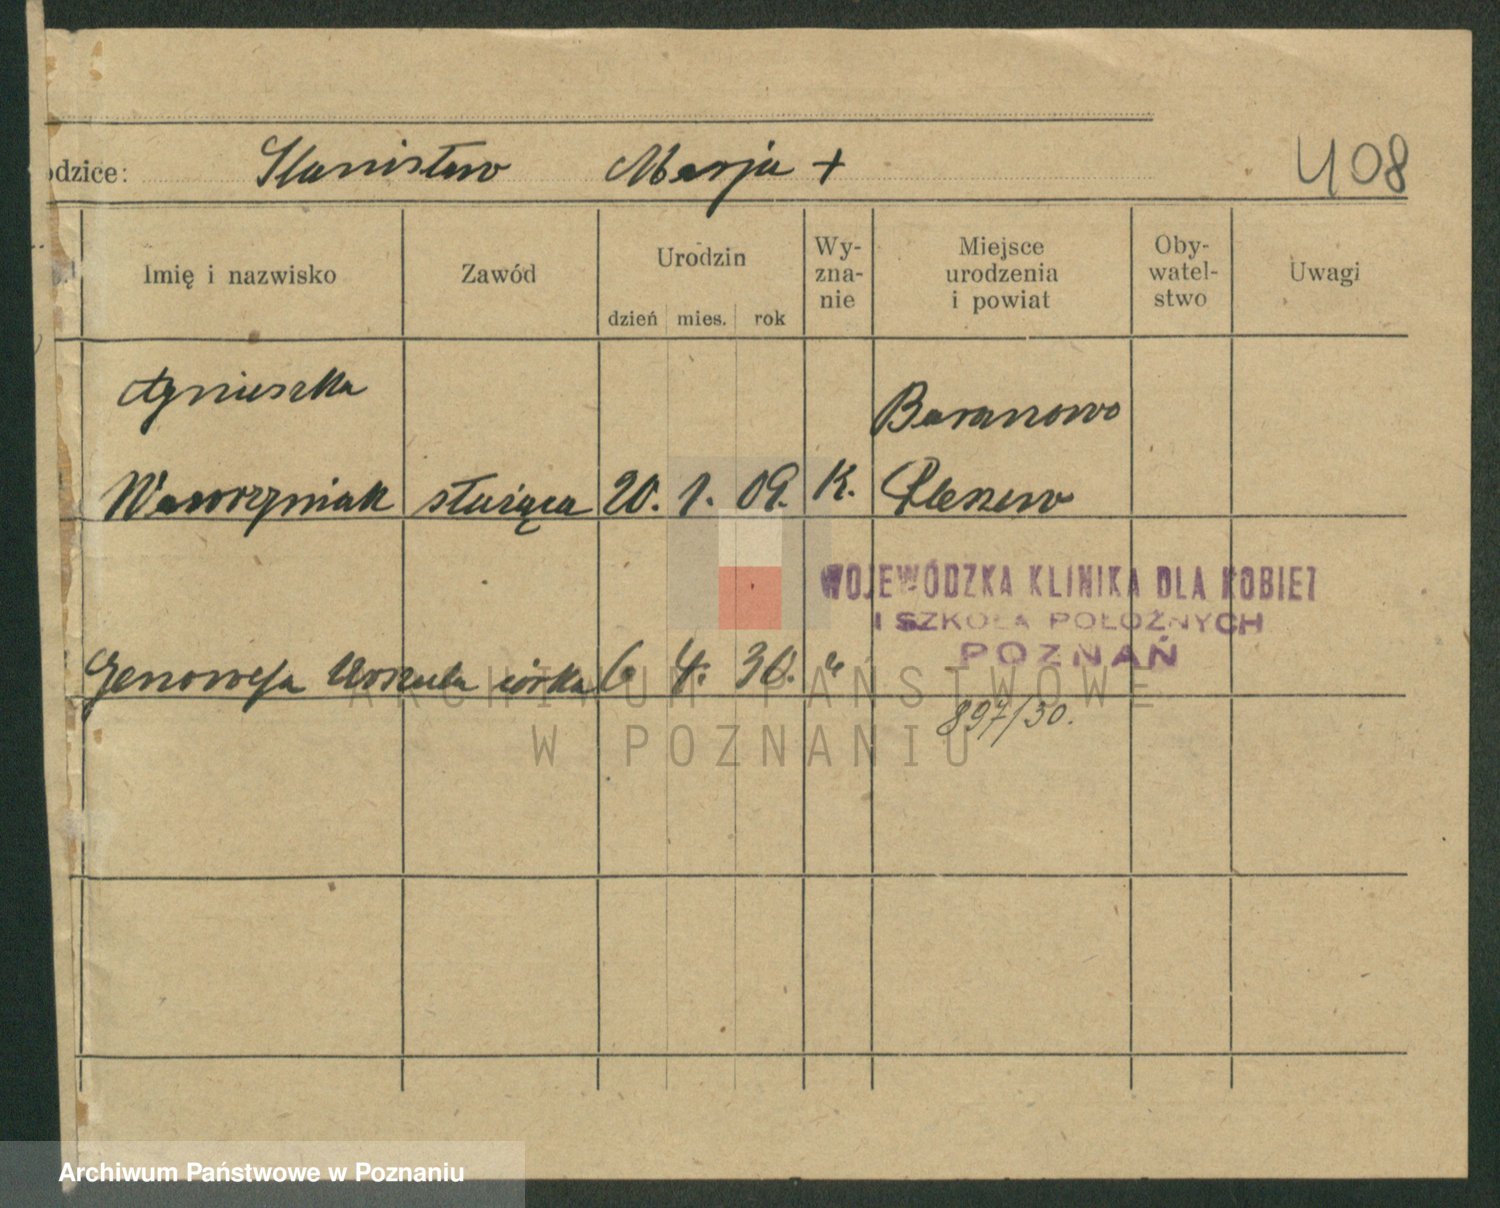 odzice: Stanisław Marja +
408
Imię i nazwisko
Zawód
Urodzin
dzień mies. rok
Wy-
zna-
nie
Miejsce
urodzenia
i powiat
Oby-
watel-
stwo
Uwagi
Agnieszka
Baranowo
Wawrzyniak służąca 20. 1. 09. K. Pleszew
WOJEWÓDZKA KLINIKA DLA KOBIET
I SZKOŁA POŁOŻNYCH
POZNAŃ
Genowefa Urszula córka 6 4. 30. "
897/30.
ARCHIWUM PAŃSTWOWE
W POZNANIU
Archiwum Państwowe w Poznaniu